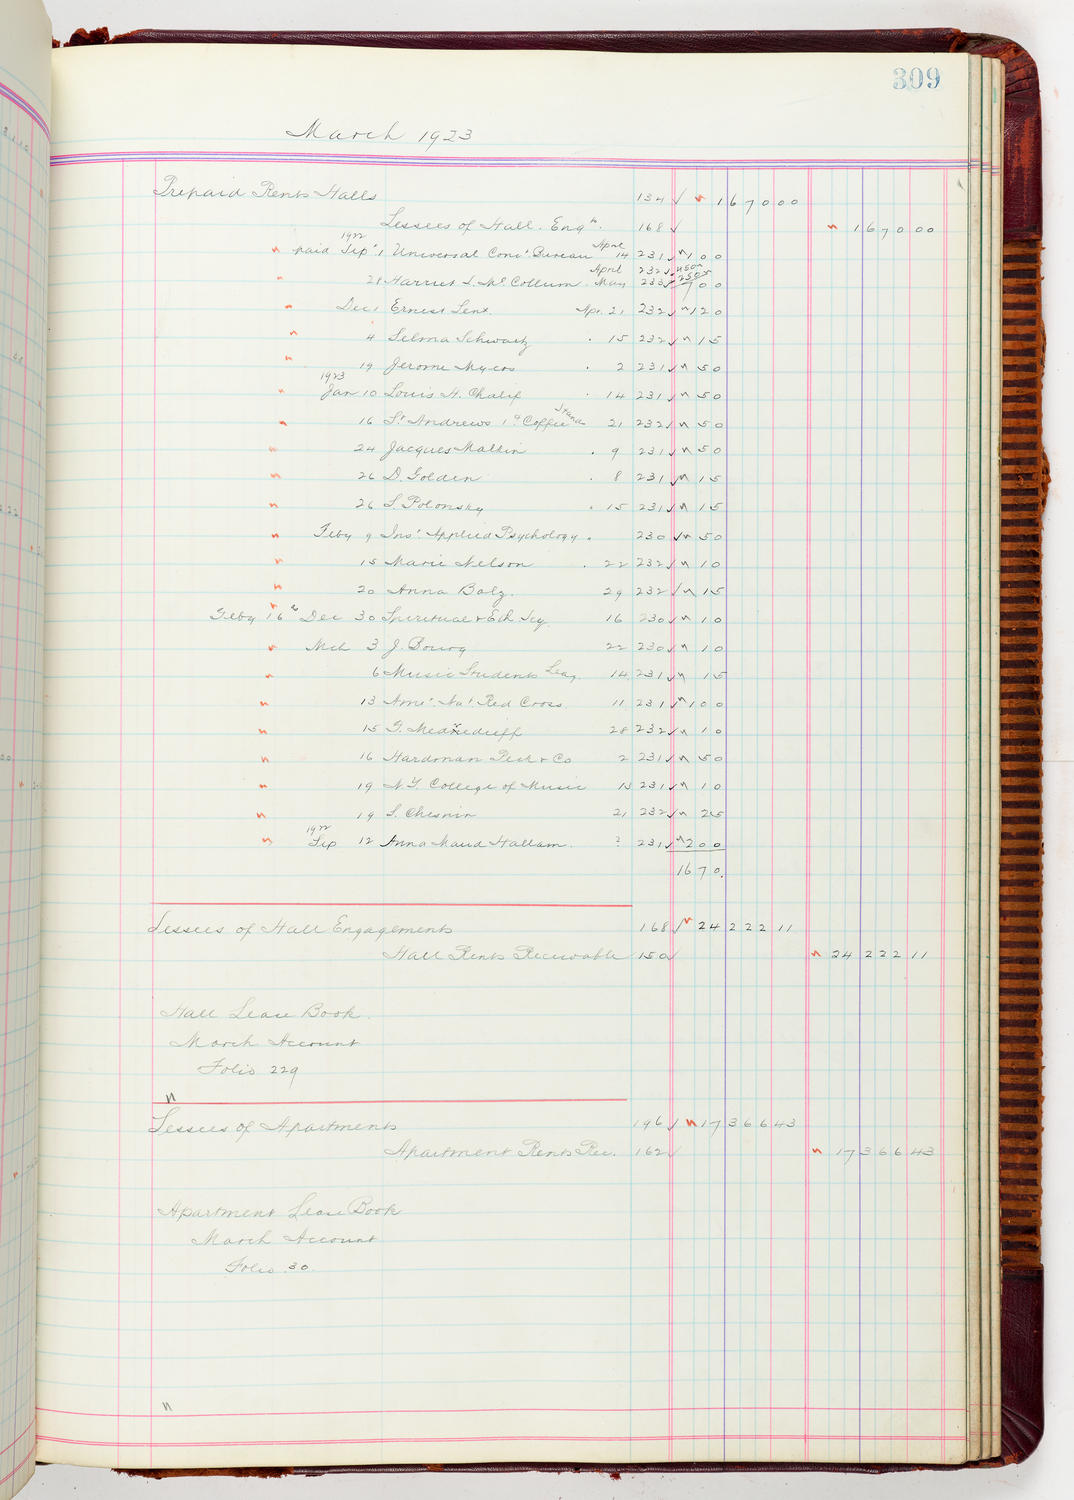 309
March 1923
Prepaid Rents Halls 134 ✓ 1670 00
Lessees of Hall Eng. 168 ✓ 1670 00
1922
paid Sep 1 Universal Conc. Bureau April 14 231 ✓ 100
28 Harriet L. McCollum April 232 ✓ 450 May 233 ✓ 250 700
Dec 1 Ernest Lent Apr. 21 232 ✓ 120
4 Selma Schwartz . 15 232 ✓ 15
19 Jerome Myers . 2 231 ✓ 50
1923
Jan 10 Louis H. Chalif . 14 231 ✓ 50
16 St Andrews 1c Coffee Stands 21 232 ✓ 50
24 Jacques Malkin . 9 231 ✓ 50
26 D. Golden . 8 231 ✓ 15
26 L. Polonsky . 15 231 ✓ 15
Feby 9 Ins. Applied Psychology . 230 ✓ 50
15 Marie Nelson . 22 232 ✓ 10
20 Anna Balz. 29 232 ✓ 15
Feby 16 to Dec 30 Spiritual & Eth. Scy. 16 230 ✓ 10
Mch 3 J. Bourg 22 230 ✓ 10
6 Music Students Leag 14 231 ✓ 15
13 Ame. Na. Red Cross 11 231 ✓ 100
15 G. 28 232 ✓ 10
16 Hardman Peck & Co 2 231 ✓ 50
19 N.Y. College of Music 231 ✓ 10
19 L. Chesnin 21 232 ✓ 25
1922
Sep 12 Anna Maud Hallam. ? 231 ✓ 200
1670.
Lessees of Hall Engagements 168 ✓ 24 222 11
Hall Rents Receivable 150 ✓ 24 222 11
Hall Lease Book.
March Account
Folio 229
Lessees of Apartments 196 ✓ 17 366 43
Apartment Rents Rec. 162 ✓ 17 366 43
Apartment Lease Book
March Account
Folio 30